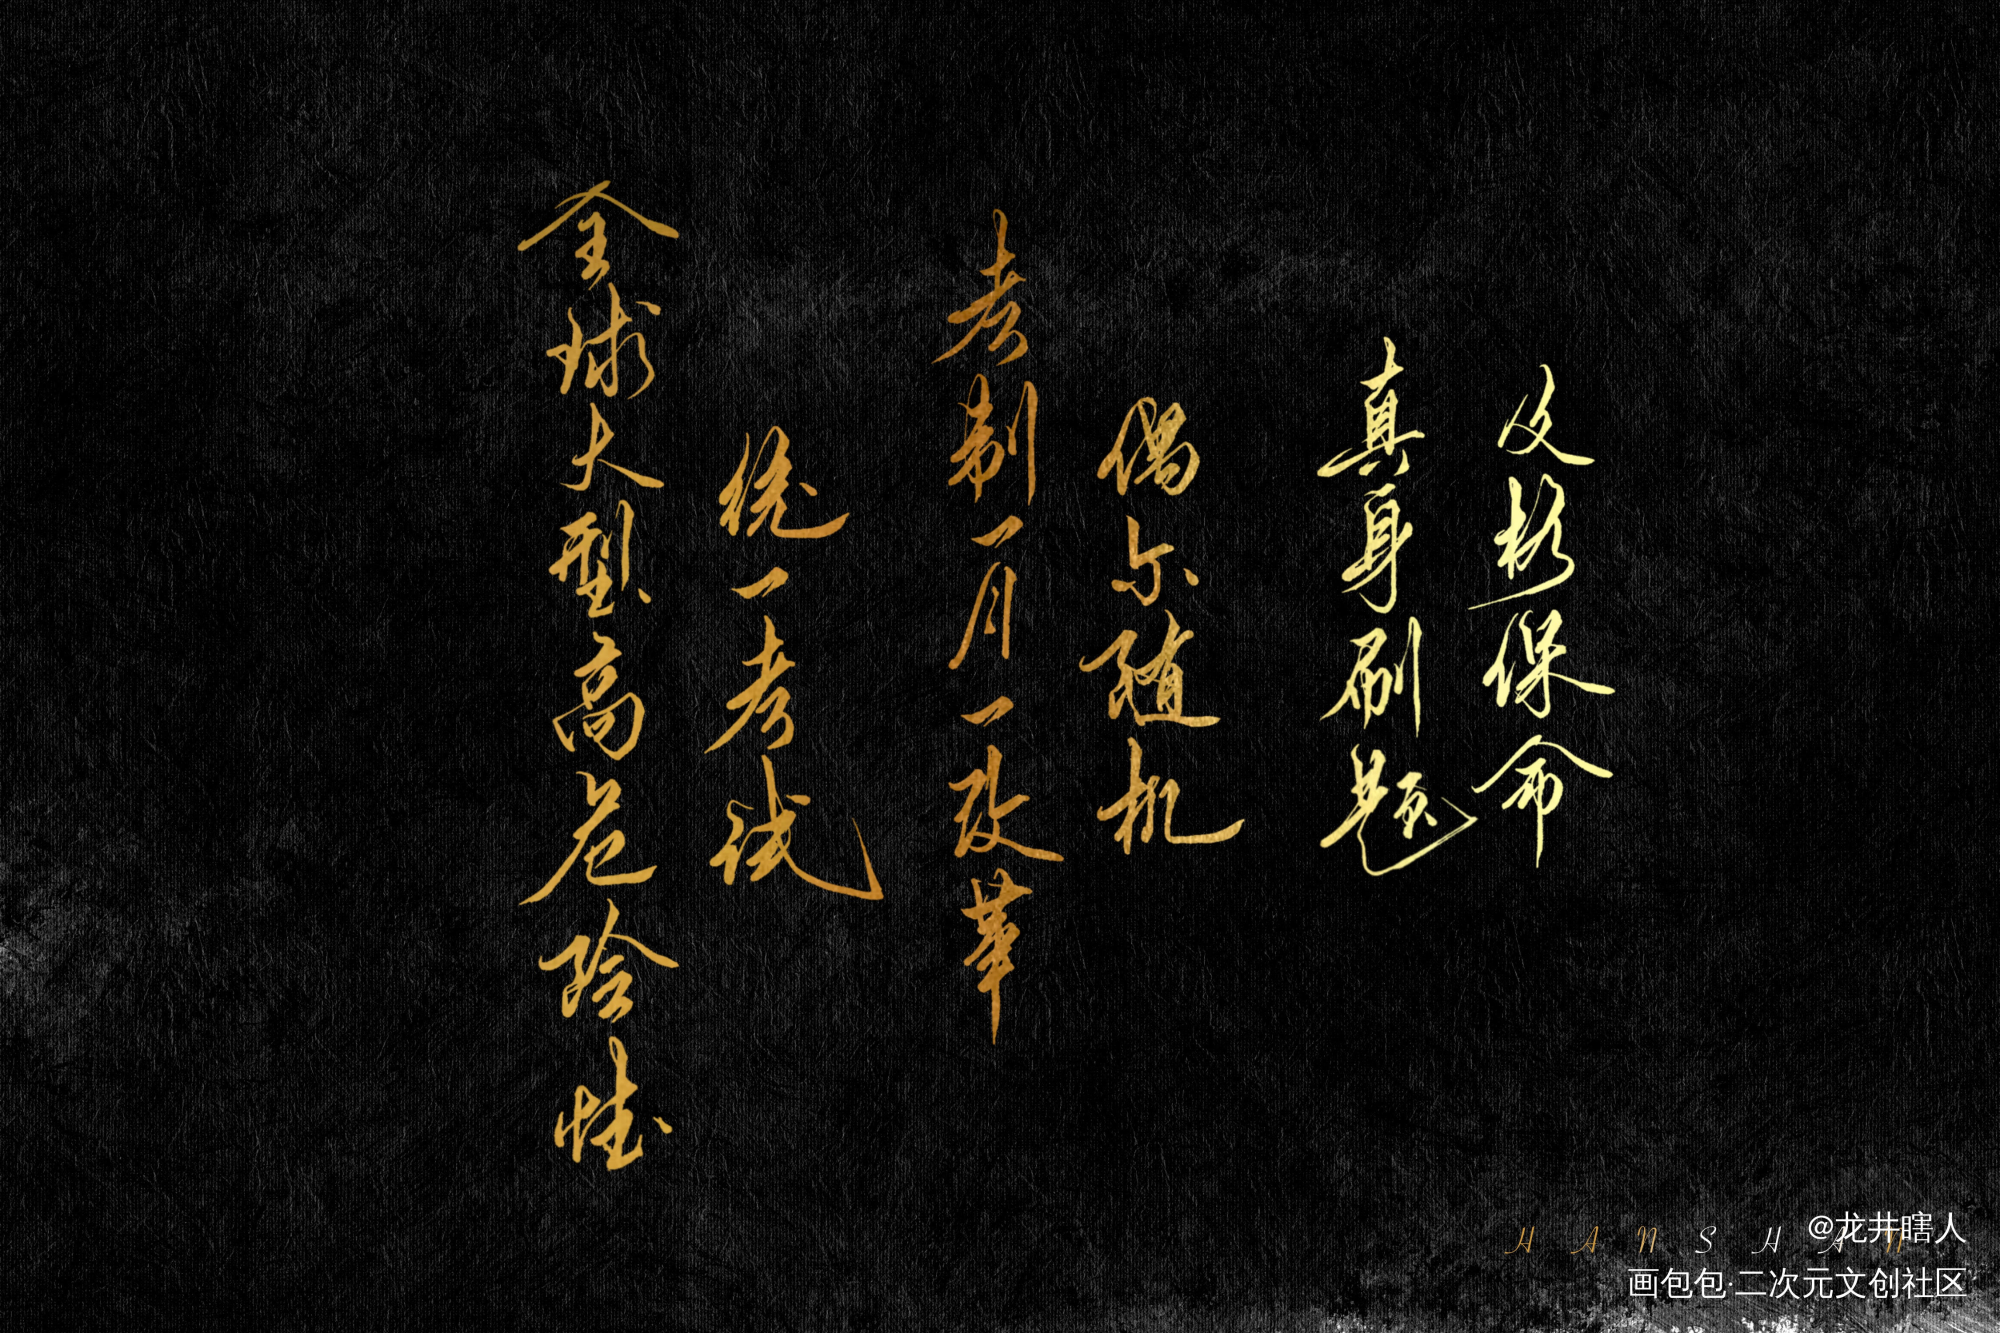 全球大型高危险性
统一考试
考制一月一改革
偶尔随机
真身刷题
及格保命
HANSHAN
@龙井瞎人
画包包·二次元文创社区